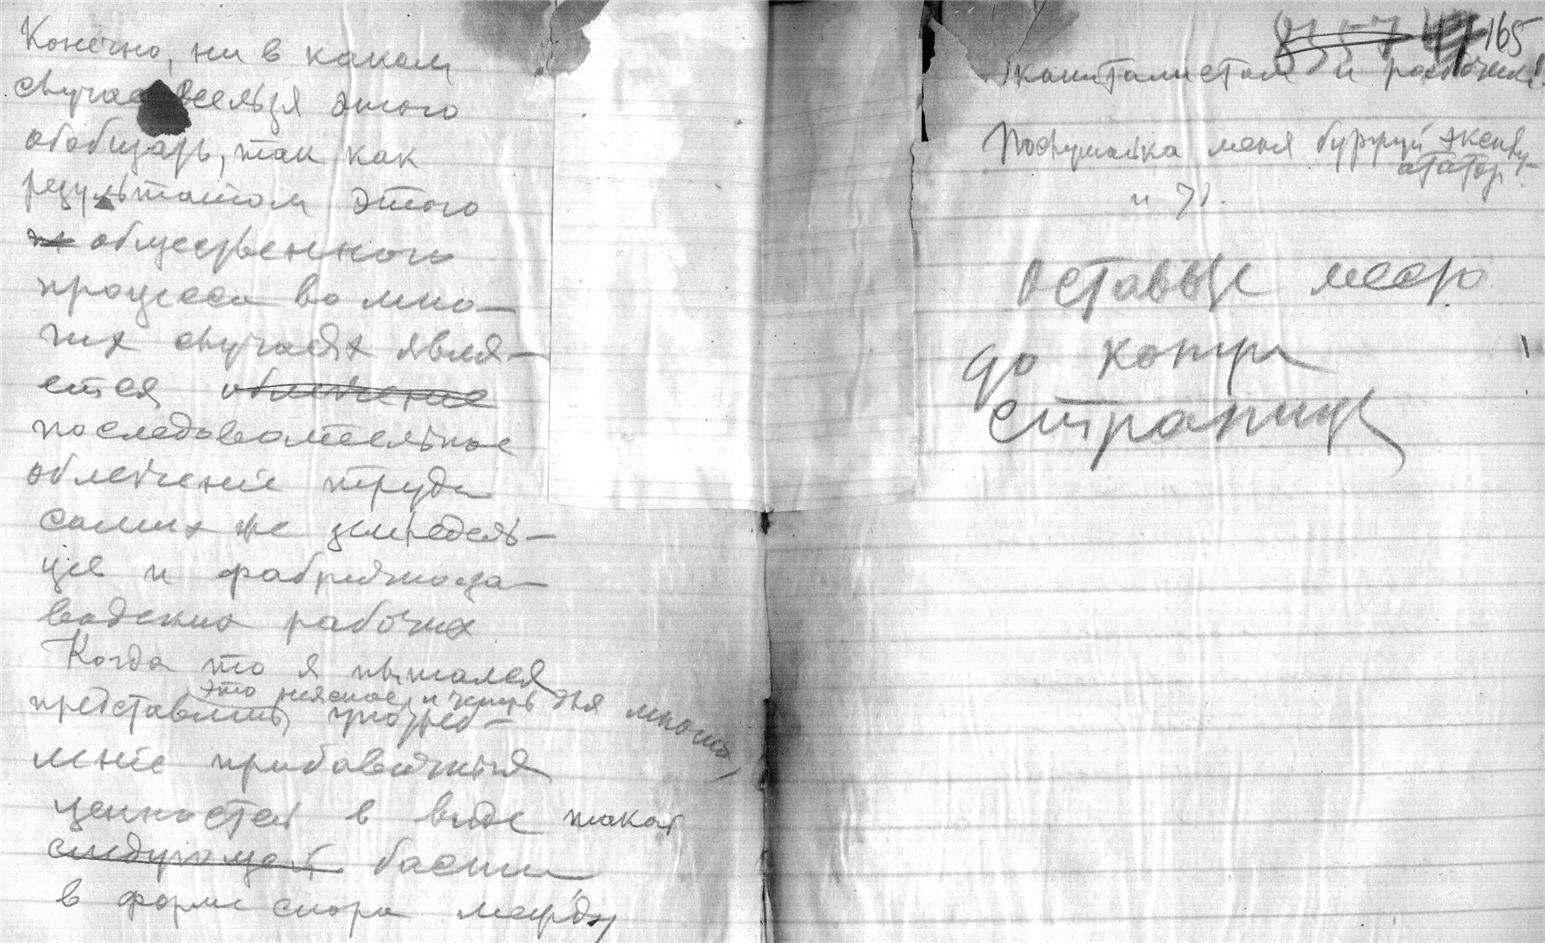 Конечно, ни в каком
случае нельзя этого
обобщать, так как
результатом этого
общественного
процесса во мно-
гих случаях явля-
ется облегчение
последовательное
облегчение труда
самих же земледель-
цев и фабричноза-
водских рабочих
Когда то я пытался
это неясное и теперь для многих
представить, употреб-
ление прибавочных
ценностей в виде такой
следующей басни
в форме спора между
165
капиталистом и рабочим!
Послушайка меня буржуй эксплу-
ататор
и т).
Оставьте место
до конца
страницы